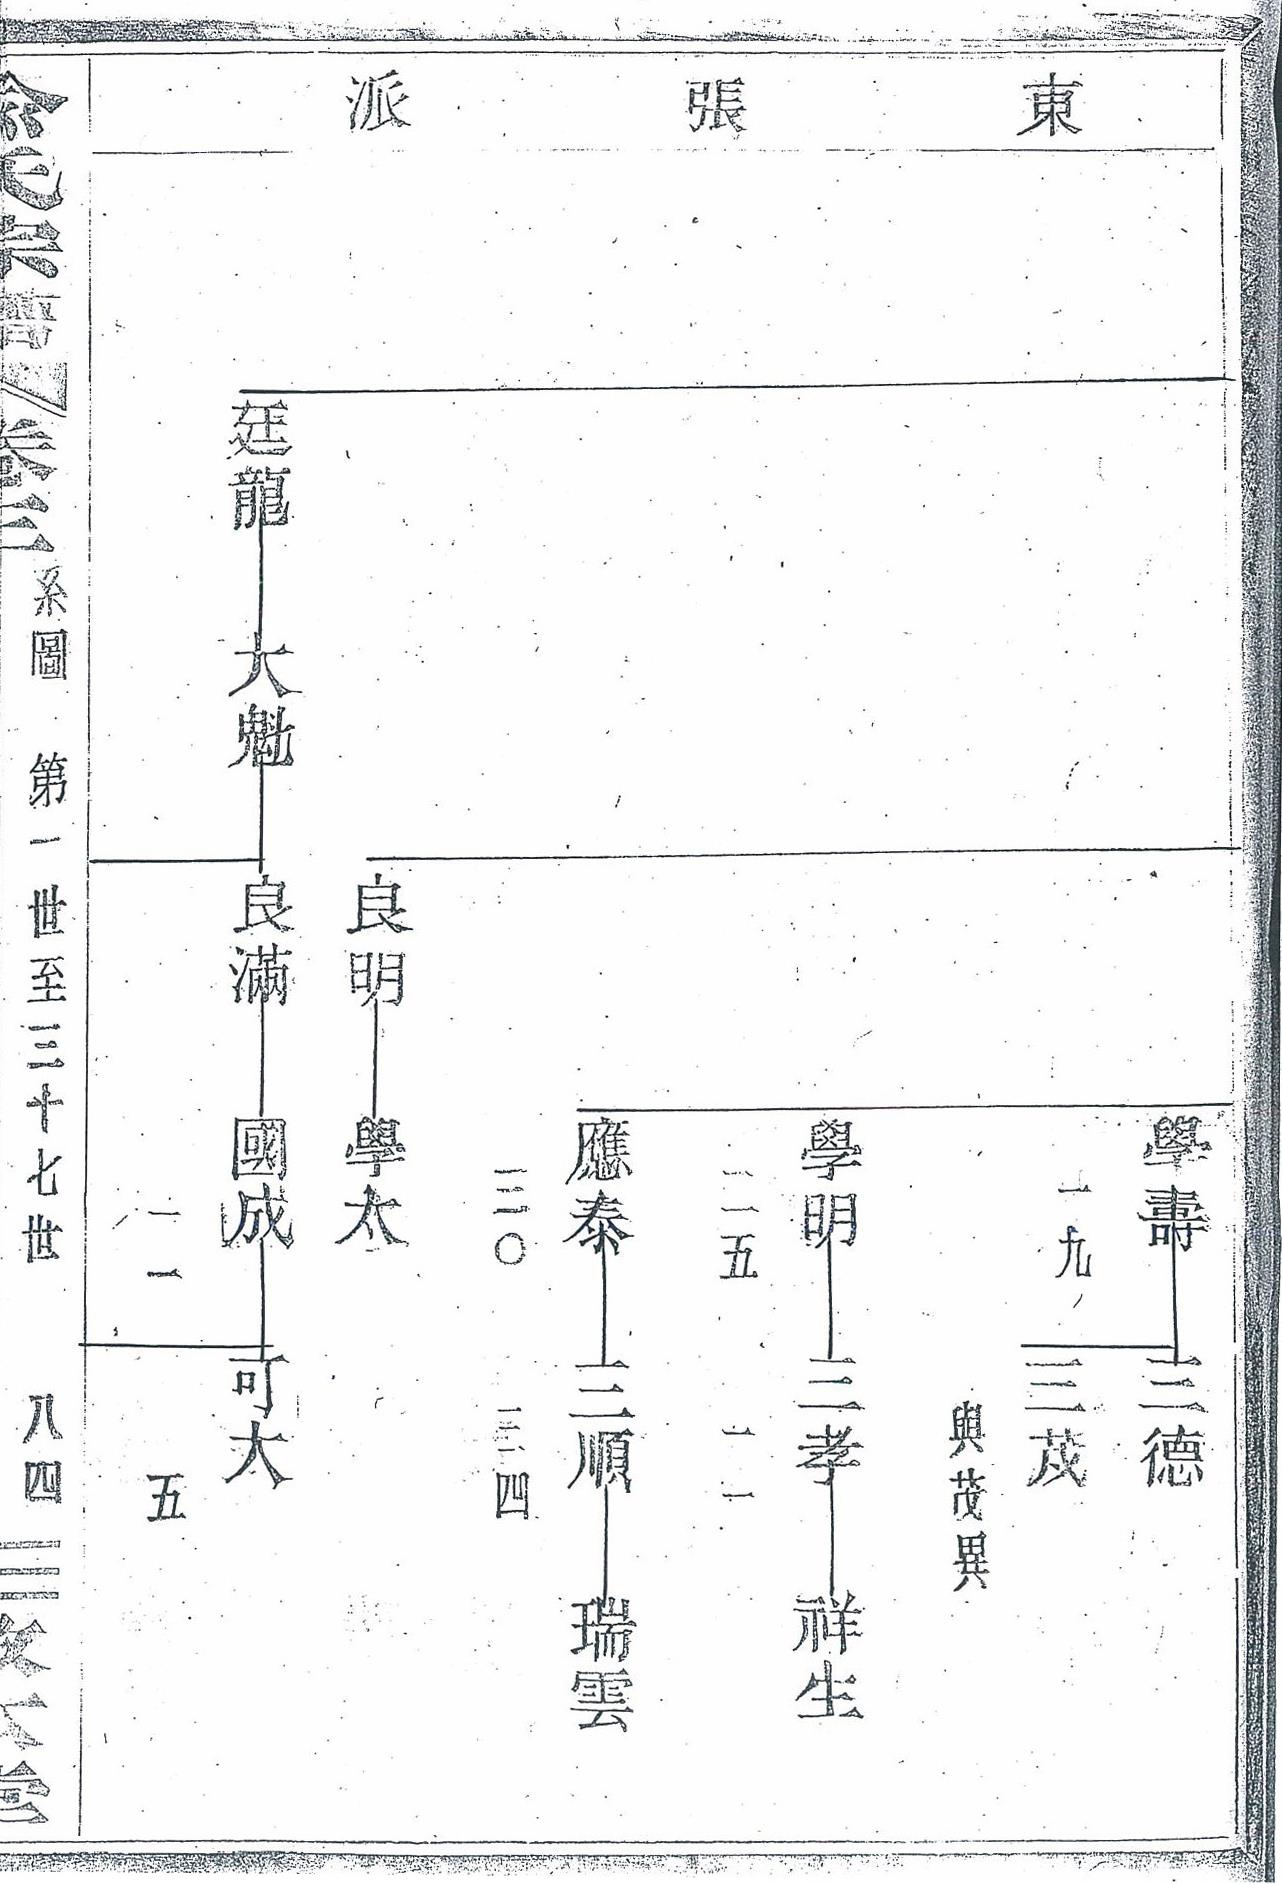 東張派
學壽
一九
三德
三茂
與茂異
學明
二一五
三孝
一一
祥生
應泰
三順
四
瑞雲
良明
學太
廷龍
大魁
良滿
國成
一一
可大
五
俞氏宗譜
卷三
系圖 第一世至三十七世 八四